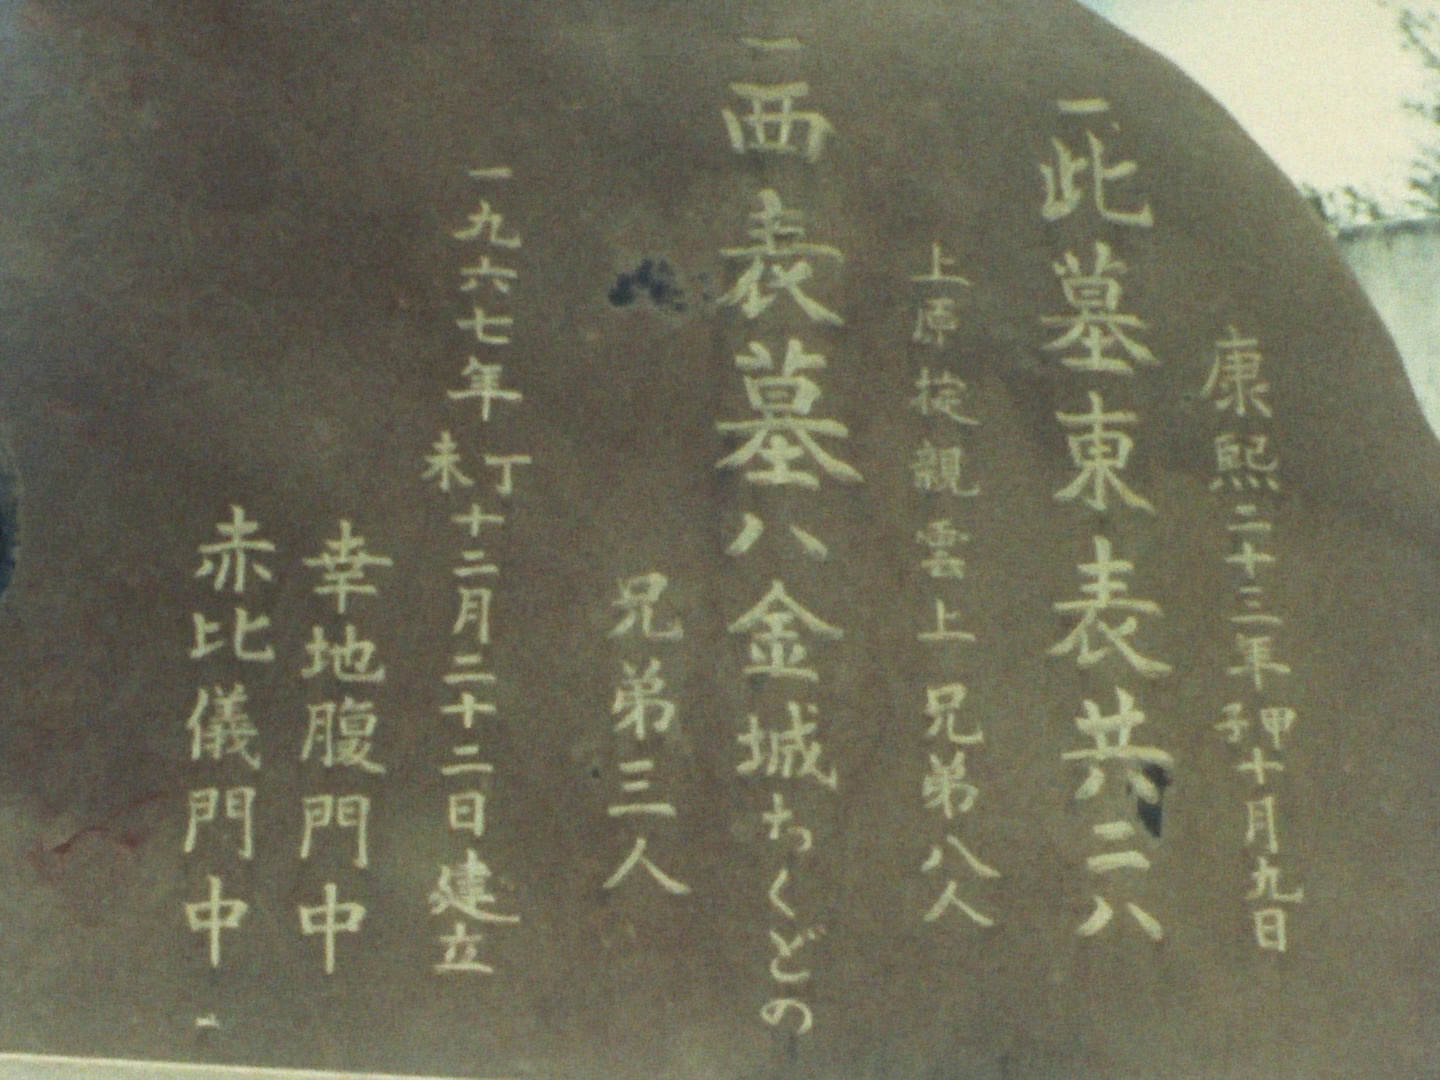 康熙二十三年甲子十月九日
一此墓東表共二八
上原掟親雲上 兄弟八人
一西表墓八金城ちくどの
兄弟三人
一九六七年丁未十二月二十二日建立
幸地腹門中
赤比儀門中